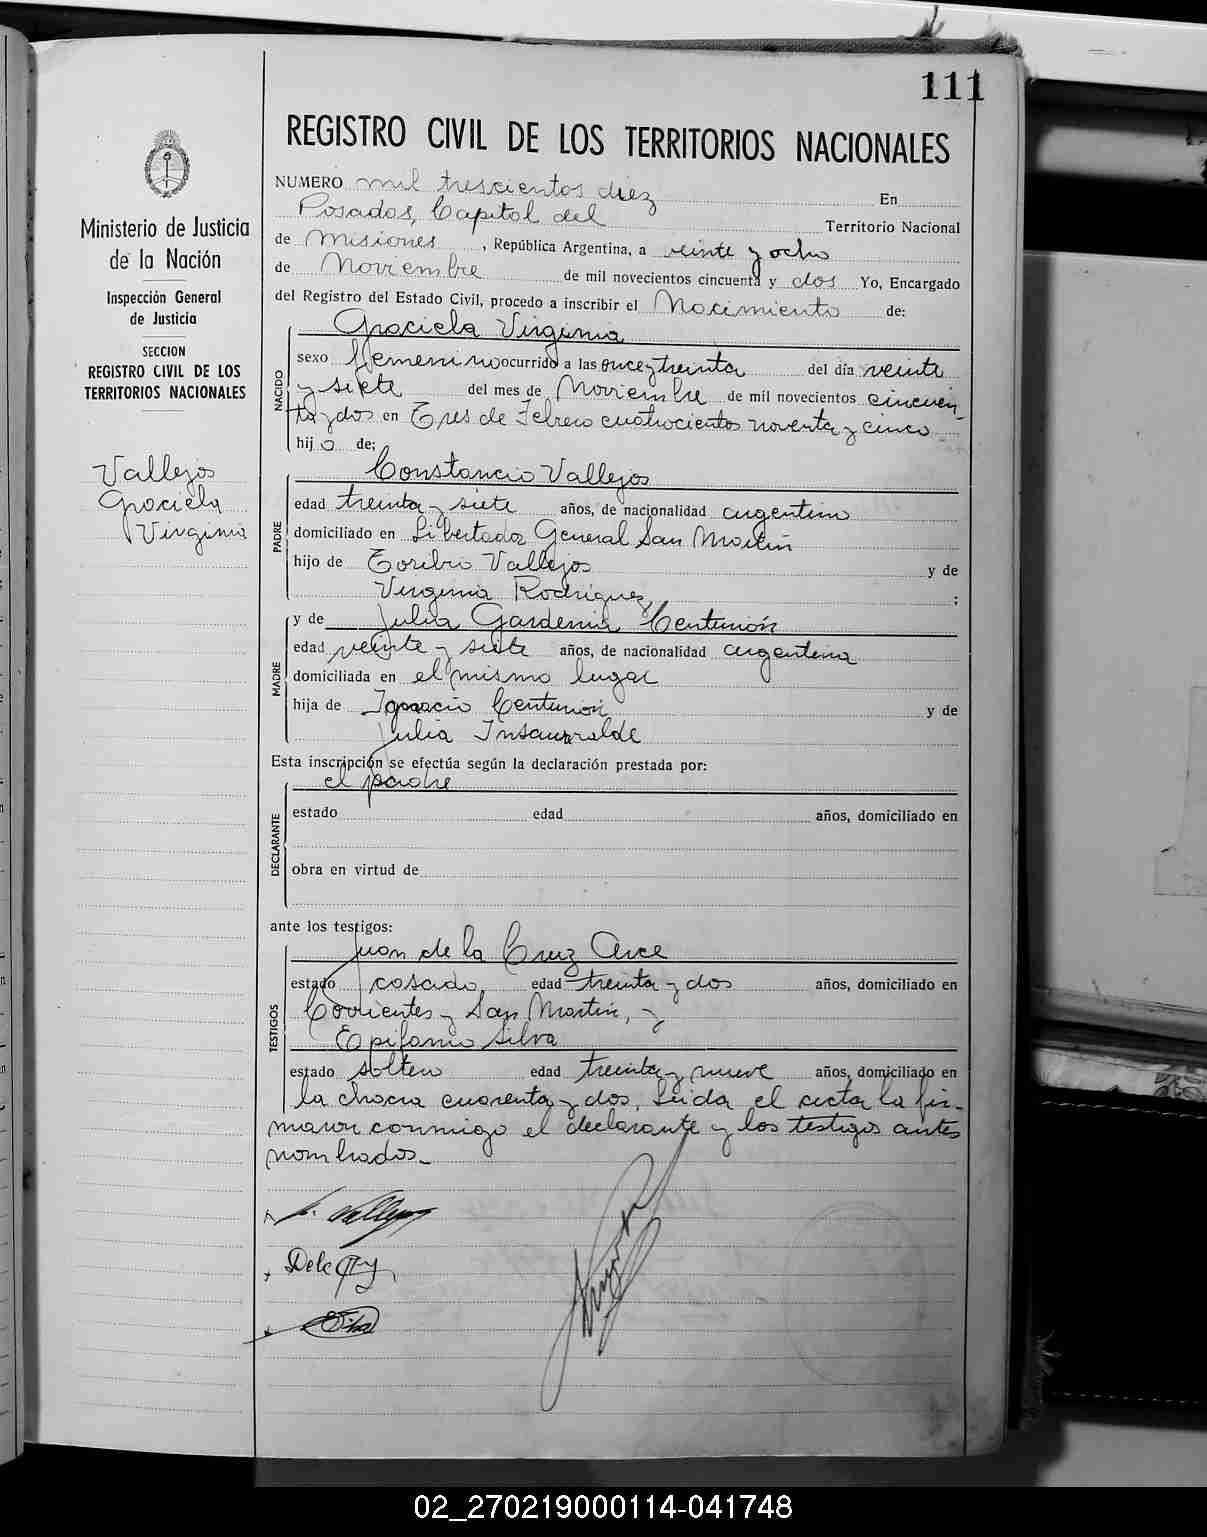 111
REGISTRO CIVIL DE LOS TERRITORIOS NACIONALES
Ministerio de Justicia
de la Nación
Inspección General
de Justicia
SECCION
REGISTRO CIVIL DE LOS
TERRITORIOS NACIONALES
Vallejos
Graciela
Virginia
NUMERO mil trescientos diez En
Posadas, Capital del Territorio Nacional
de Misiones, República Argentina, a veinte y ocho
de Noviembre de mil novecientos cincuenta y dos Yo, Encargado
del Registro del Estado Civil, procedo a inscribir el Nacimiento de:
NACIDO
Graciela Virginia
sexo femenino ocurrido a las once y treinta del día veinte
y siete del mes de Noviembre de mil novecientos cincuen-
ta y dos en Tres de Febrero cuatrocientos noventa y cinco
hija de;
PADRE
Constancio Vallejos
edad treinta y siete años, de nacionalidad argentino
domiciliado en Libertador General San Martín
hijo de Toribio Vallejos y de
Virginia Rodriguez ;
MADRE
y de Julia Gardenia Centurión
edad veinte y siete años, de nacionalidad argentina
domiciliada en el mismo lugar
hija de Ignacio Centurión y de
Julia Insaurralde
Esta inscripción se efectúa según la declaración prestada por:
el padre
DECLARANTE
estado edad años, domiciliado en
obra en virtud de
ante los testigos:
TESTIGOS
Juan de la Cruz Arce
estado casado, edad treinta y dos años, domiciliado en
Corrientes y San Martín, y
Epifanio Silva
estado soltero edad treinta y nueve años, domiciliado en
la chacra cuarenta y dos. Leida el acta la fir-
maron conmigo el declarante y los testigos antes
nombrados.-
Vallejos
02_270219000114-041748